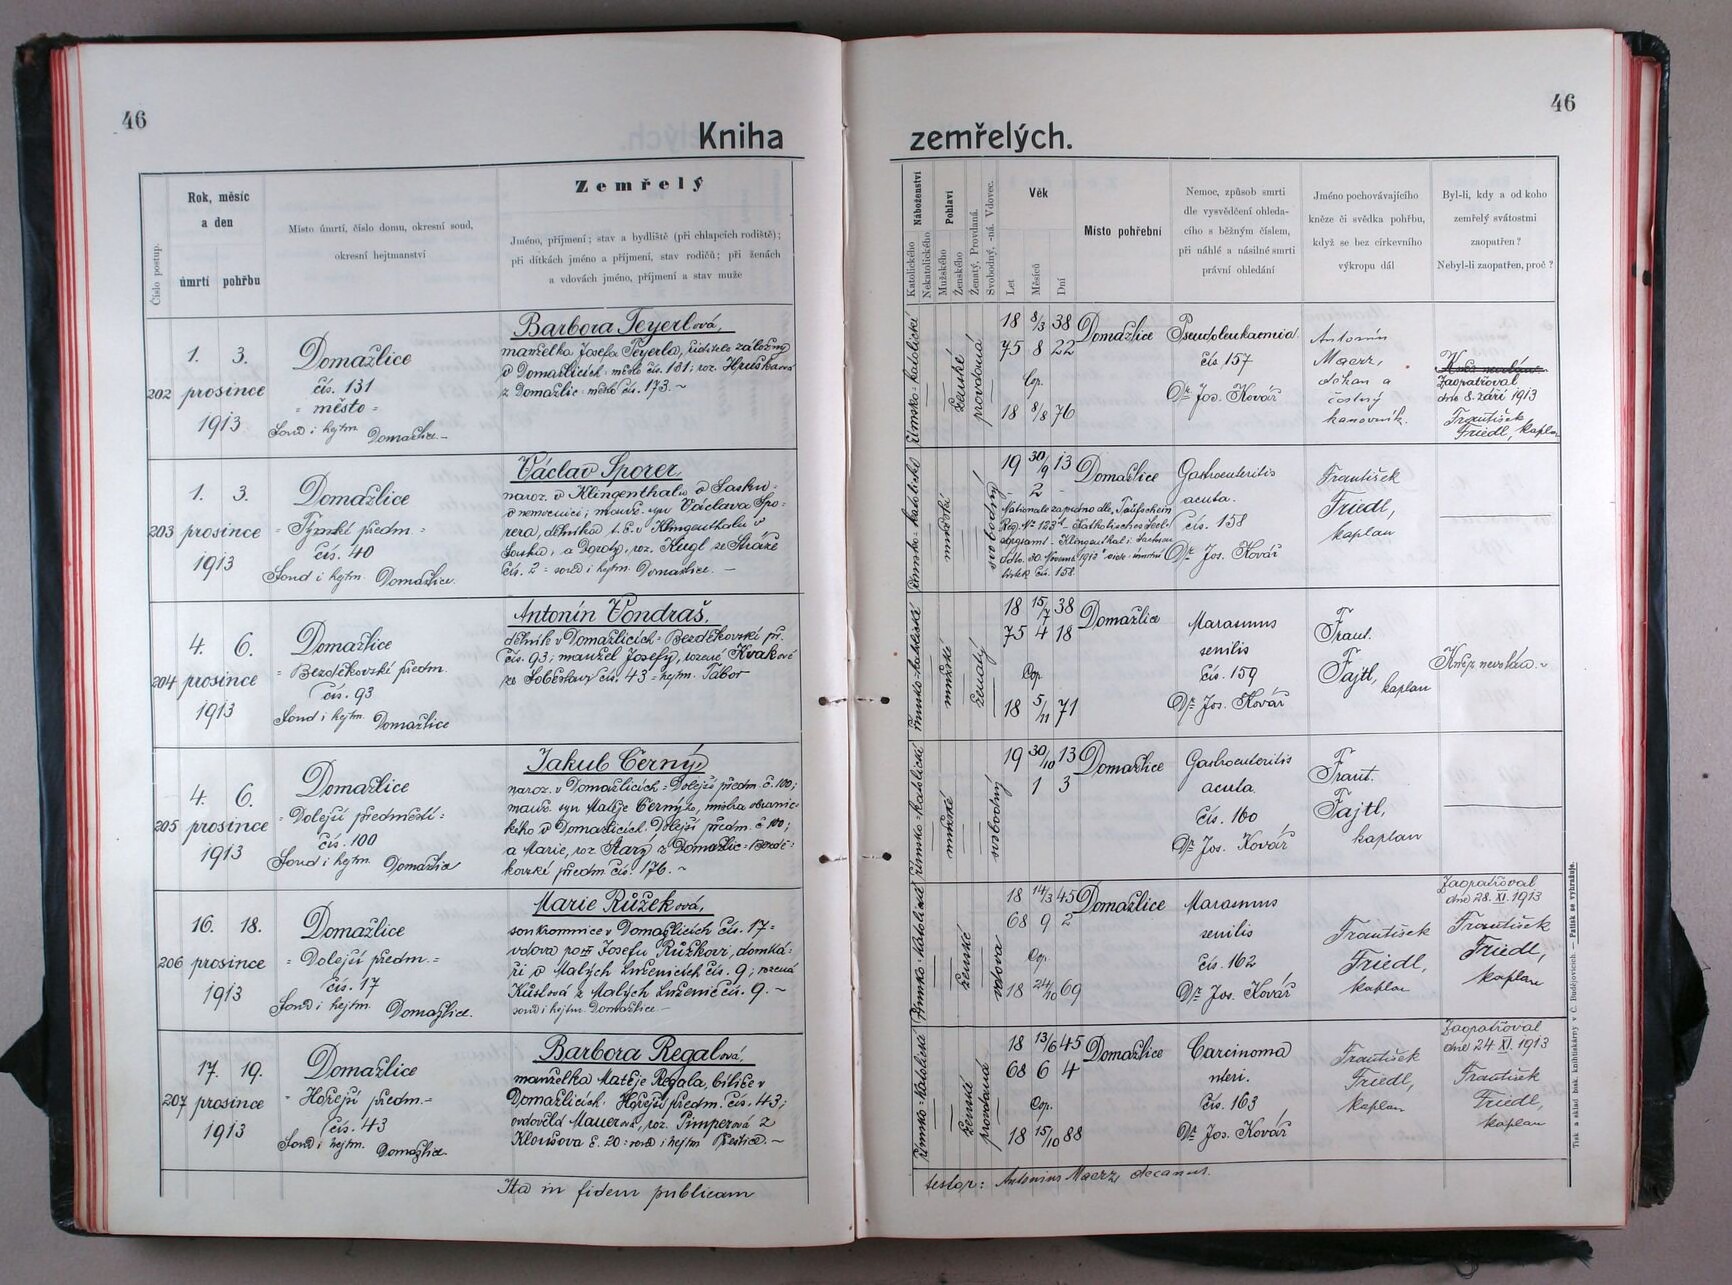 46
46
Kniha
zemřelých.
Číslo postup.
Rok, měsíc
a den
úmrtí pohřbu
Místo úmrtí, číslo domu, okresní soud,
okresní hejtmanství
Zemřelý
Jméno, příjmení; stav a bydliště (při chlapcích rodiště);
při dítkách jméno a příjmení, stav rodičů; při ženách
a vdovách jméno, příjmení a stav muže
Náboženství
Katolického
Nekatolického
Pohlaví
Mužského
Ženského
Ženatý, Provdaná.
Svobodný, -ná. Vdovec.
Věk
Let
Měsíců
Dní
Místo pohřební
Nemoc, způsob smrti
dle vysvědčení ohleda-
cího s běžným číslem,
při náhlé a násilné smrti
právní ohledání
Jméno pochovávajícího
kněze či svědka pohřbu,
když se bez církevního
výkropu dál
Byl-li, kdy a od koho
zemřelý svátostmi
zaopatřen?
Nebyl-li zaopatřen, proč?
202
1. 3.
prosince
1913
Domažlice
čís. 131
= město =
Soud i hejtm. Domažlice. –
Barbora Teyerlová,
manželka Josefa Teyerla, ředitele záložny
v Domažlicích = město čís. 131; roz. Hruškova
z Domažlic = město čís. 173. ~
Římsko-katolické
ženské
provdaná
18 8/3 38
75 8 22
Cop.
18 8/8 76
Domažlice
Pseudoleukaemia
čís 157
Dr Jos. Kovář
Antonín
Maerz,
děkan a
čestný
kanovník.
Zaopatřoval
dne 8. září 1913
František
Friedl, kaplan
203
1. 3.
prosince
1913
Domažlice
= Týnské předm. =
čís. 40
Soud i hejtm. Domažlice.
Václav Sporer
naroz. v Klingenthalu v Sasku =
v nemocnici; manž. syn Václava Spo-
rera, dělníka t. č. v Klingenthalu v
Sasku, a Doroty, roz. Kugl ze Stráže
čís. 2 = soud i hejtm. Domažlice. –
Římsko-katolické
mužské
svobodný
19 30/9 13
- 2 -
Domažlice
Nationale zapsáno dle „Taufschein
Reg. No 123
Katholisches Seel-
sorgsamt - Klingenthal i. Sachsen
ddto. 30. Novemb. 1913“
lístek čís. 158.
Gastroenteritis
acuta.
čís. 158
Dr Jos. Kovář
František
Friedl,
kaplan
204
4. 6.
prosince
1913
Domažlice
= Bezděkovské předm.
čís. 93
Soud i hejtm. Domažlice
Antonín Vondraš,
dělník v Domažlicích = Bezděkovské př.
čís. 93; manžel Josefy, rozené Kvakové
ze Soběslavy čís. 43 = hejtm. Tábor
Římsko-katolické
mužské
ženatý
18 15/7 38
75 4 18
Cop.
18 5/11 71
Domažlice
Marasmus
senilis
čís. 159
Dr Jos. Kovář
Frant.
Fajtl,
kaplan
Kněz nevolán. ~
205
4. 6.
prosince
1913
Domažlice
= Dolejší předměstí =
čís. 100
Soud i hejtm. Domažlice
Jakub Černý,
naroz. v Domažlicích = Dolejší předm. č. 100;
manž. syn Matěje Černýho, mistra obuvnic-
kého v Domažlicích. Dolejší předm. č. 100;
a Marie, roz. Starý z Domažlic = Bezdě-
kovské předm. čís. 176. ~
Římsko-katolické
mužské
svobodný
19 30/10 13
1 3
Domažlice
Gastroenteritis
acuta.
čís. 160
Dr Jos. Kovář
Frant.
Fajtl,
kaplan
206
16. 18.
prosince
1913
Domažlice
= Dolejší předm. =
čís. 17
Soud i hejtm. Domažlice.
Marie Růžeková,
soukromnice v Domažlicích čís. 17 =
vdova po Josefu Růžkovi, domká-
ři v Malých Luženicích čís. 9; rozená
z Malých Luženic čís. 9. ~
soud i hejtm. Domažlice –
Římsko-katolické
ženské
vdova
18 14/3 45
68 9 2
Cop.
18 24/10 69
Domažlice
Marasmus
senilis
čís. 162
Dr Jos. Kovář
František
Friedl,
kaplan
Zaopatřoval
dne 28. XI. 1913
František
Friedl,
kaplan
207
17. 19.
prosince
1913
Domažlice
= Hořejší předm. =
čís. 43
Soud i hejtm. Domažlice.
Barbora Regalová,
manželka Matěje Regala, bíliče v
Domažlicích. Hořejší předm. čís. 43;
ovdovělá Mauerová, roz. Pimperová z
č. 20 = soud i hejtm Přeštice. ~
Římsko-katolické
ženské
provdaná
18 13/6 45
68 6 4
Cop.
18 15/10 88
Domažlice
Carcinoma
uteri.
čís. 163
Dr Jos. Kovář
František
Friedl,
kaplan
Zaopatřoval
dne 24. XI. 1913
František
Friedl,
kaplan
Ita in fidem publicam
testor: Antonius Maerz, decanus.
Tisk a sklad knihtiskárny v Č. Budějovicích. — Patisk se vyhražuje.